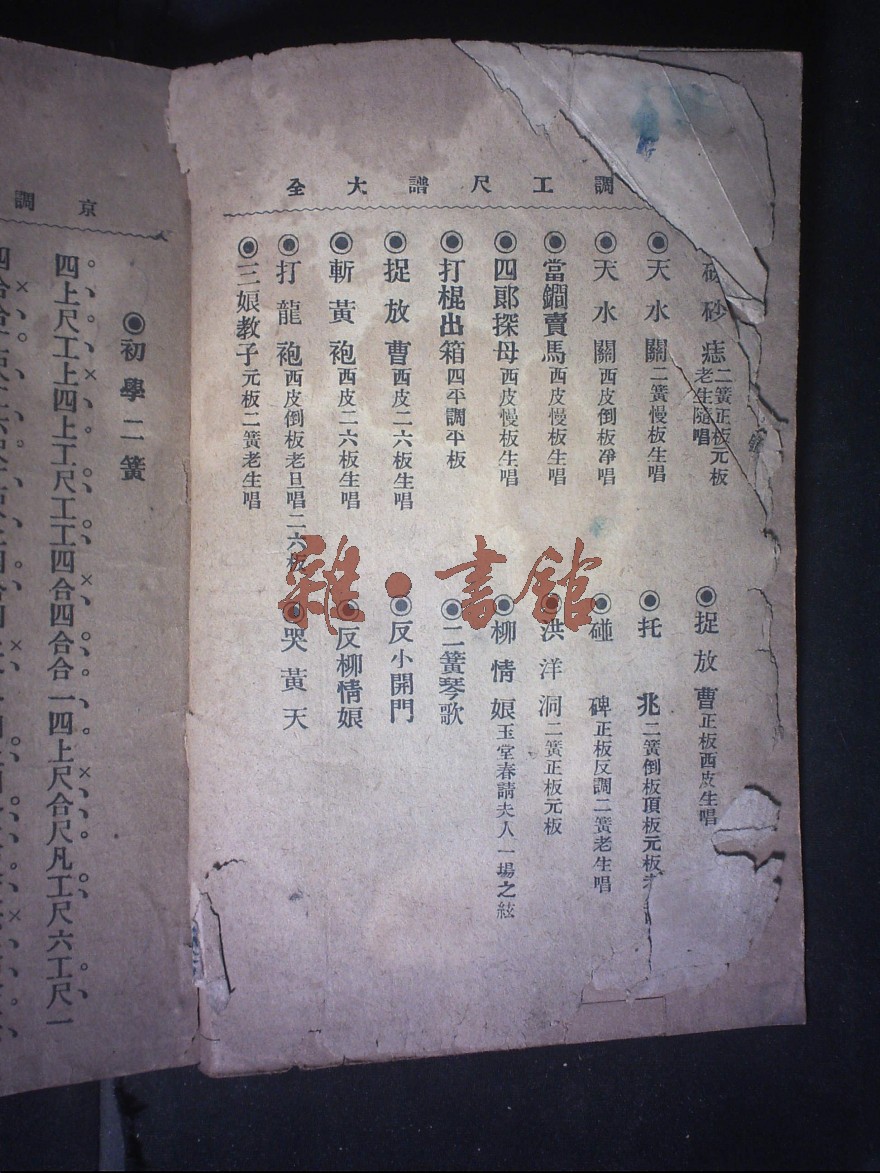 調工尺譜大全
砂痣二簧正板元板老生隨唱
◉天水關二簧慢板生唱
◉天水關西皮倒板凈唱
◉當鐧賣馬西皮慢板生唱
◉四郞探母西皮慢板生唱
◉打棍出箱四平調平板
◉捉放曹西皮二六板生唱
◉斬黃袍西皮二六板生唱
◉打龍袍西皮倒板老旦唱二六板
◉三娘教子元板二簧老生唱
◉捉放曹正板西皮生唱
◉托兆二簧倒板頂板元板
◉碰碑正板反調二簧老生唱
◉洪洋洞二簧正板元板
◉柳情娘玉堂春請夫人一場之絃
◉二簧琴歌
◉反小開門
◉反柳情娘
◉哭黃天
雜·書館
京調
◉初學二簧
四上尺工上四上工尺工工四合四合合一四上尺合尺凡工尺六工尺一